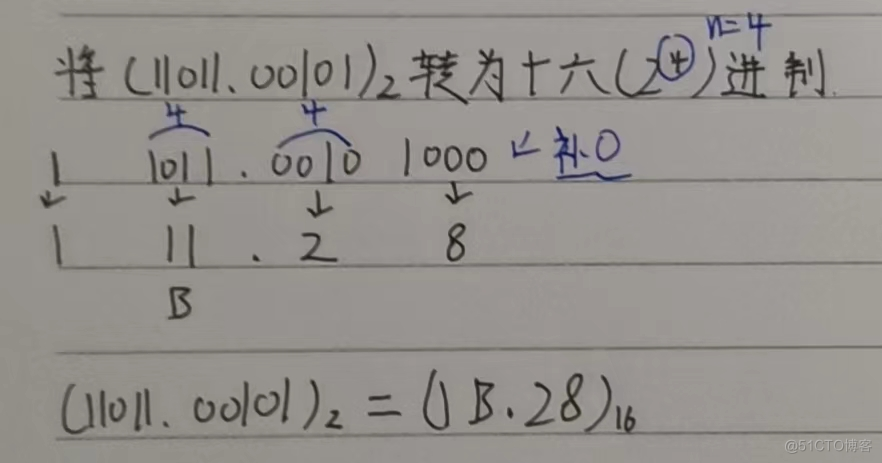 n=4
将(11011.00101)₂转为十六(2⁴)进制.
4 4
1 1011 . 0010 1000 ↙ 补0
↙ ↓ ↓ ↓
1 11 . 2 8
B
(11011.00101)₂=(1B.28)₁₆
@51CTO博客